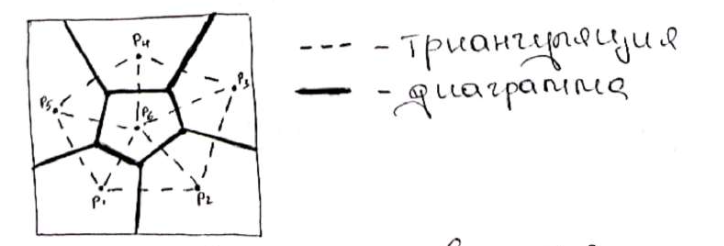 P4
P3
P5
P6
P1
P2
--- - триангуляция
— - диаграмма